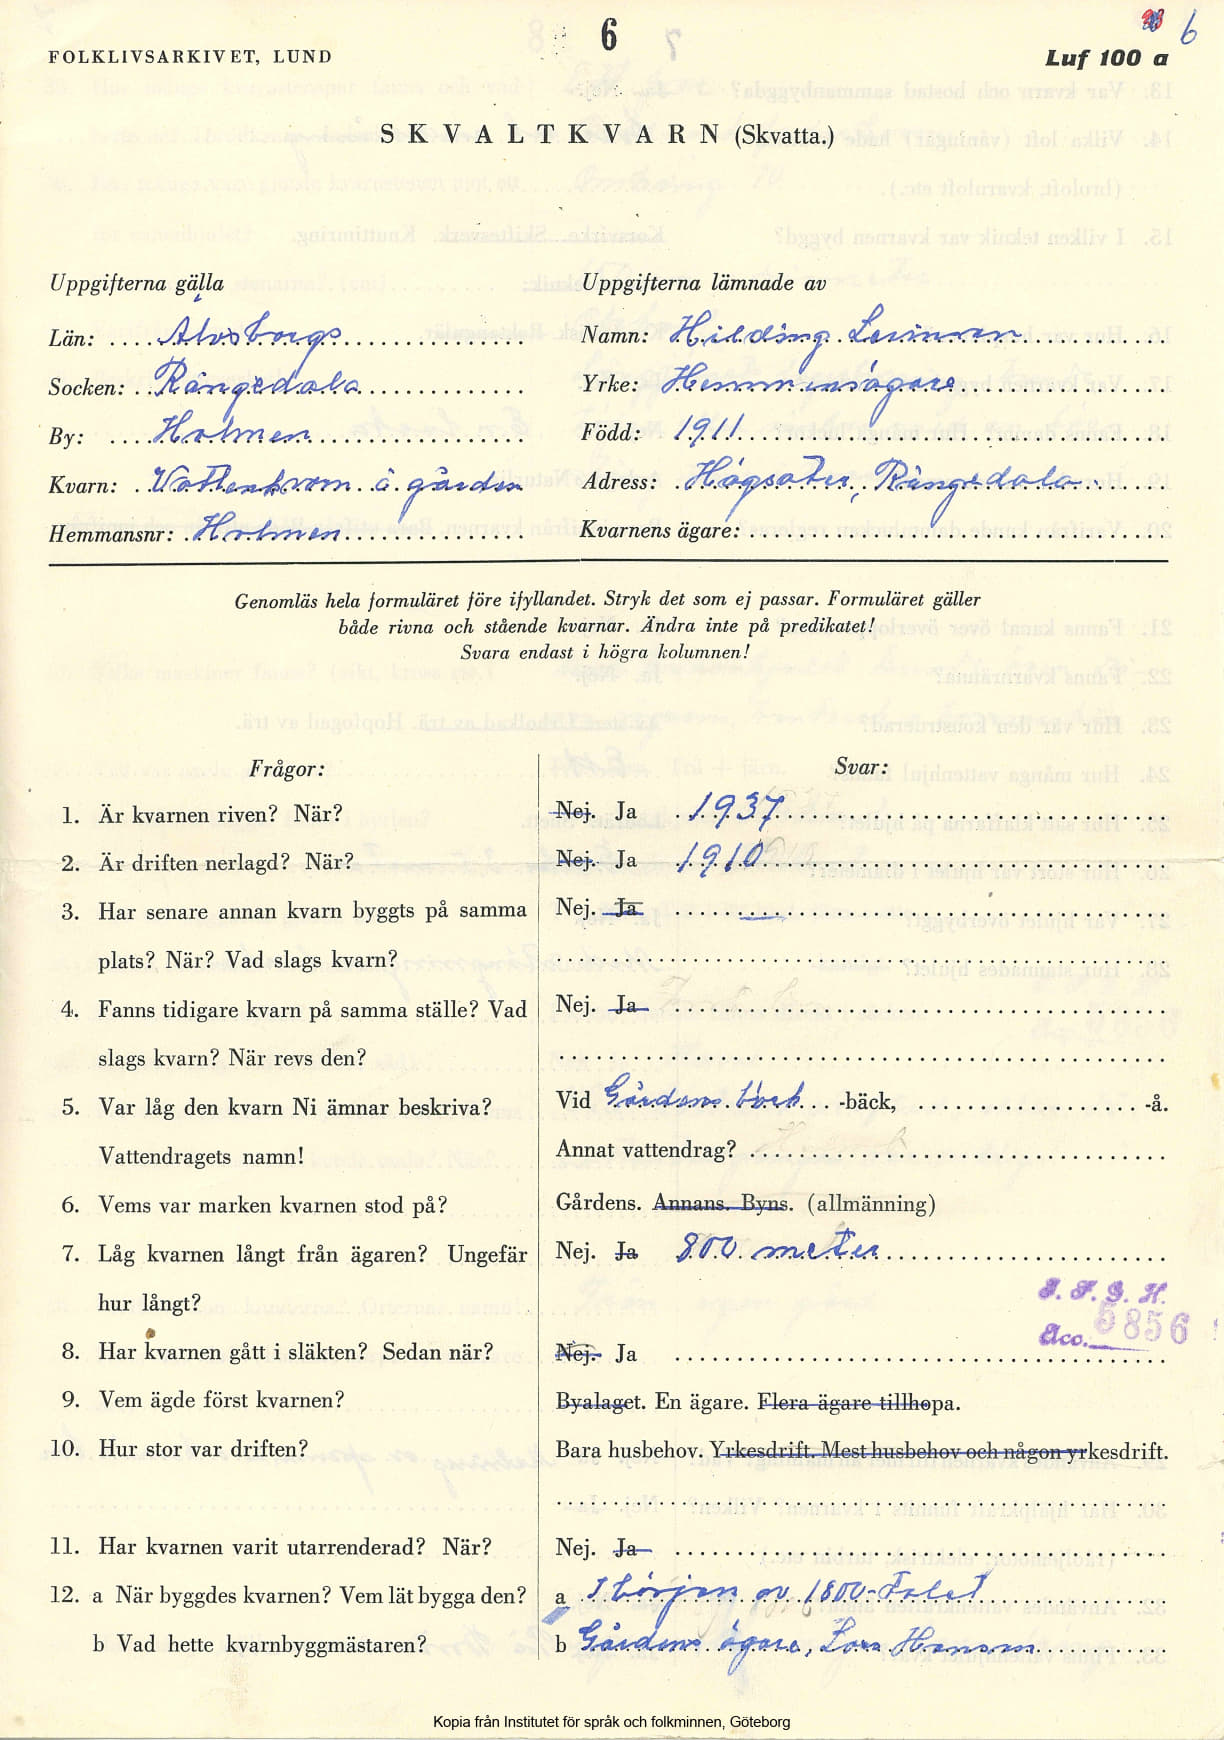 6
6
FOLKLIVSARKIVET, LUND
Luf 100 a
SKVALTKVARN (Skvatta.)
Uppgifterna gälla
Län: Älvsborgs
Socken: Rångedala
By: Holmen
Kvarn: Vattenkvarn å gården
Hemmansnr: Holmen
Uppgifterna lämnade av
Namn: Hilding
Yrke: Hemmansägare
Född: 1911
Adress: Högsäter, Rångedala
Kvarnens ägare:
Genomläs hela formuläret före ifyllandet. Stryk det som ej passar. Formuläret gäller
både rivna och stående kvarnar. Ändra inte på predikatet!
Svara endast i högra kolumnen!
Frågor:
Svar:
1. Är kvarnen riven? När? Nej. Ja 1937
2. Är driften nerlagd? När? Nej. Ja 1910
3. Har senare annan kvarn byggts på samma Nej. Ja
plats? När? Vad slags kvarn?
4. Fanns tidigare kvarn på samma ställe? Vad Nej. Ja
slags kvarn? När revs den?
5. Var låg den kvarn Ni ämnar beskriva? Vid Gårdens bäck -bäck, -å.
Vattendragets namn! Annat vattendrag?
6. Vems var marken kvarnen stod på? Gårdens. Annans. Byns. (allmänning)
7. Låg kvarnen långt från ägaren? Ungefär Nej. Ja 800 meter
hur långt?
I. F. G. H.
Acc. 5856
8. Har kvarnen gått i släkten? Sedan när? Nej. Ja
9. Vem ägde först kvarnen? Byalaget. En ägare. Flera ägare tillhopa.
10. Hur stor var driften? Bara husbehov. Yrkesdrift. Mest husbehov och någon yrkesdrift.
11. Har kvarnen varit utarrenderad? När? Nej. Ja
12. a När byggdes kvarnen? Vem lät bygga den? a I början av 1800-talet
b Vad hette kvarnbyggmästaren? b Gårdens ägare, Lars Hansson
Kopia från Institutet för språk och folkminnen, Göteborg